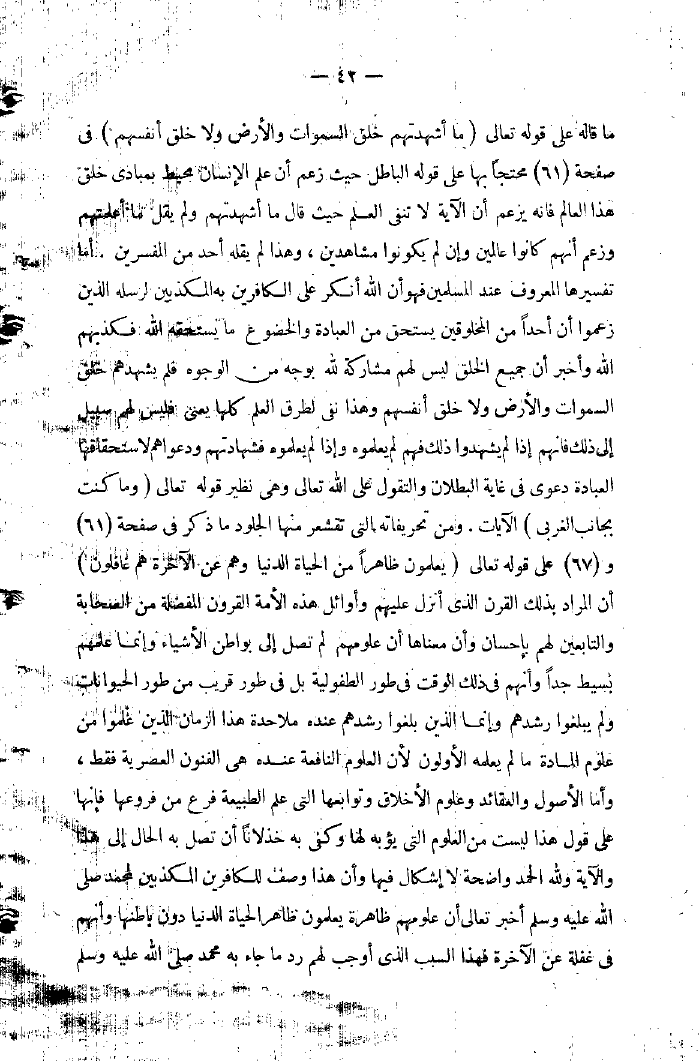 — ٤٢ —
ما قاله على قوله تعالى ( ما أشهدتهم خلق السموات والأرض ولا خلق أنفسهم ) فى
صفحة (٦١) محتجاً بها على قوله الباطل حيث زعم أن علم الإنسان محيط بمبادى خلق
هذا العالم فانه يزعم أن الآية لا تنفى العلم حيث قال ما أشهدتهم ولم يقل ما أعلمتهم
وزعم أنهم كانوا عالمين وإن لم يكونوا مشاهدين ، وهذا لم يقله أحد من المفسرين . أما
تفسيرها المعروف عند المسلمين فهو أن الله أنكر على الكافرين به المكذبين لرسله الذين
زعموا أن أحداً من المخلوقين يستحق من العبادة والخضوع ما يستحقه الله فكذبهم
الله وأخبر أن جميع الخلق ليس لهم مشاركة لله بوجه من الوجوه فلم يشهدهم خلق
السموات والأرض ولا خلق أنفسهم وهذا نفى لطرق العلم كلها يعنى فليس لهم سبيل
إلى ذلك فانهم إذا لم يشهدوا ذلك فهم لم يعلموه وإذا لم يعلموه فشهادتهم ودعواهم لاستحقاقها
العبادة دعوى فى غاية البطلان والتقول على الله تعالى وهى نظير قوله تعالى ( وما كنت
بجانب الغربى ) الآيات . ومن تحريفاته التى تقشعر منها الجلود ما ذكر فى صفحة (٦١)
و (٦٧) على قوله تعالى ( يعلمون ظاهراً من الحياة الدنيا وهم عن الآخرة هم غافلون )
أن المراد بذلك القرن الذى أنزل عليهم وأوائل هذه الأمة القرون المفضلة من الصحابة
والتابعين لهم بإحسان وأن معناها أن علومهم لم تصل إلى بواطن الأشياء وإنما علمهم
بسيط جداً وأنهم فى ذلك الوقت فى طور الطفولية بل فى طور قريب من طور الحيوانات
ولم يبلغوا رشدهم وإنما الذين بلغوا رشدهم عنده ملاحدة هذا الزمان الذين علموا من
علوم المادة ما لم يعلمه الأولون لأن العلوم النافعة عنده هى الفنون العصرية فقط ،
وأما الأصول والعقائد وعلوم الأخلاق وتوابعها التى علم الطبيعة فرع من فروعها فإنها
على قول هذا ليست من العلوم التى يؤبه لها وكفى به خذلاناً أن تصل به الحال إلى هذا
والآية ولله الحمد واضحة لا إشكال فيها وأن هذا وصف للكافرين المكذبين لمحمد صلى
الله عليه وسلم أخبر تعالى أن علومهم ظاهرة يعلمون ظاهر الحياة الدنيا دون باطنها وأنهم
فى غفلة عن الآخرة فهذا السبب الذى أوجب لهم رد ما جاء به محمد صلى الله عليه وسلم